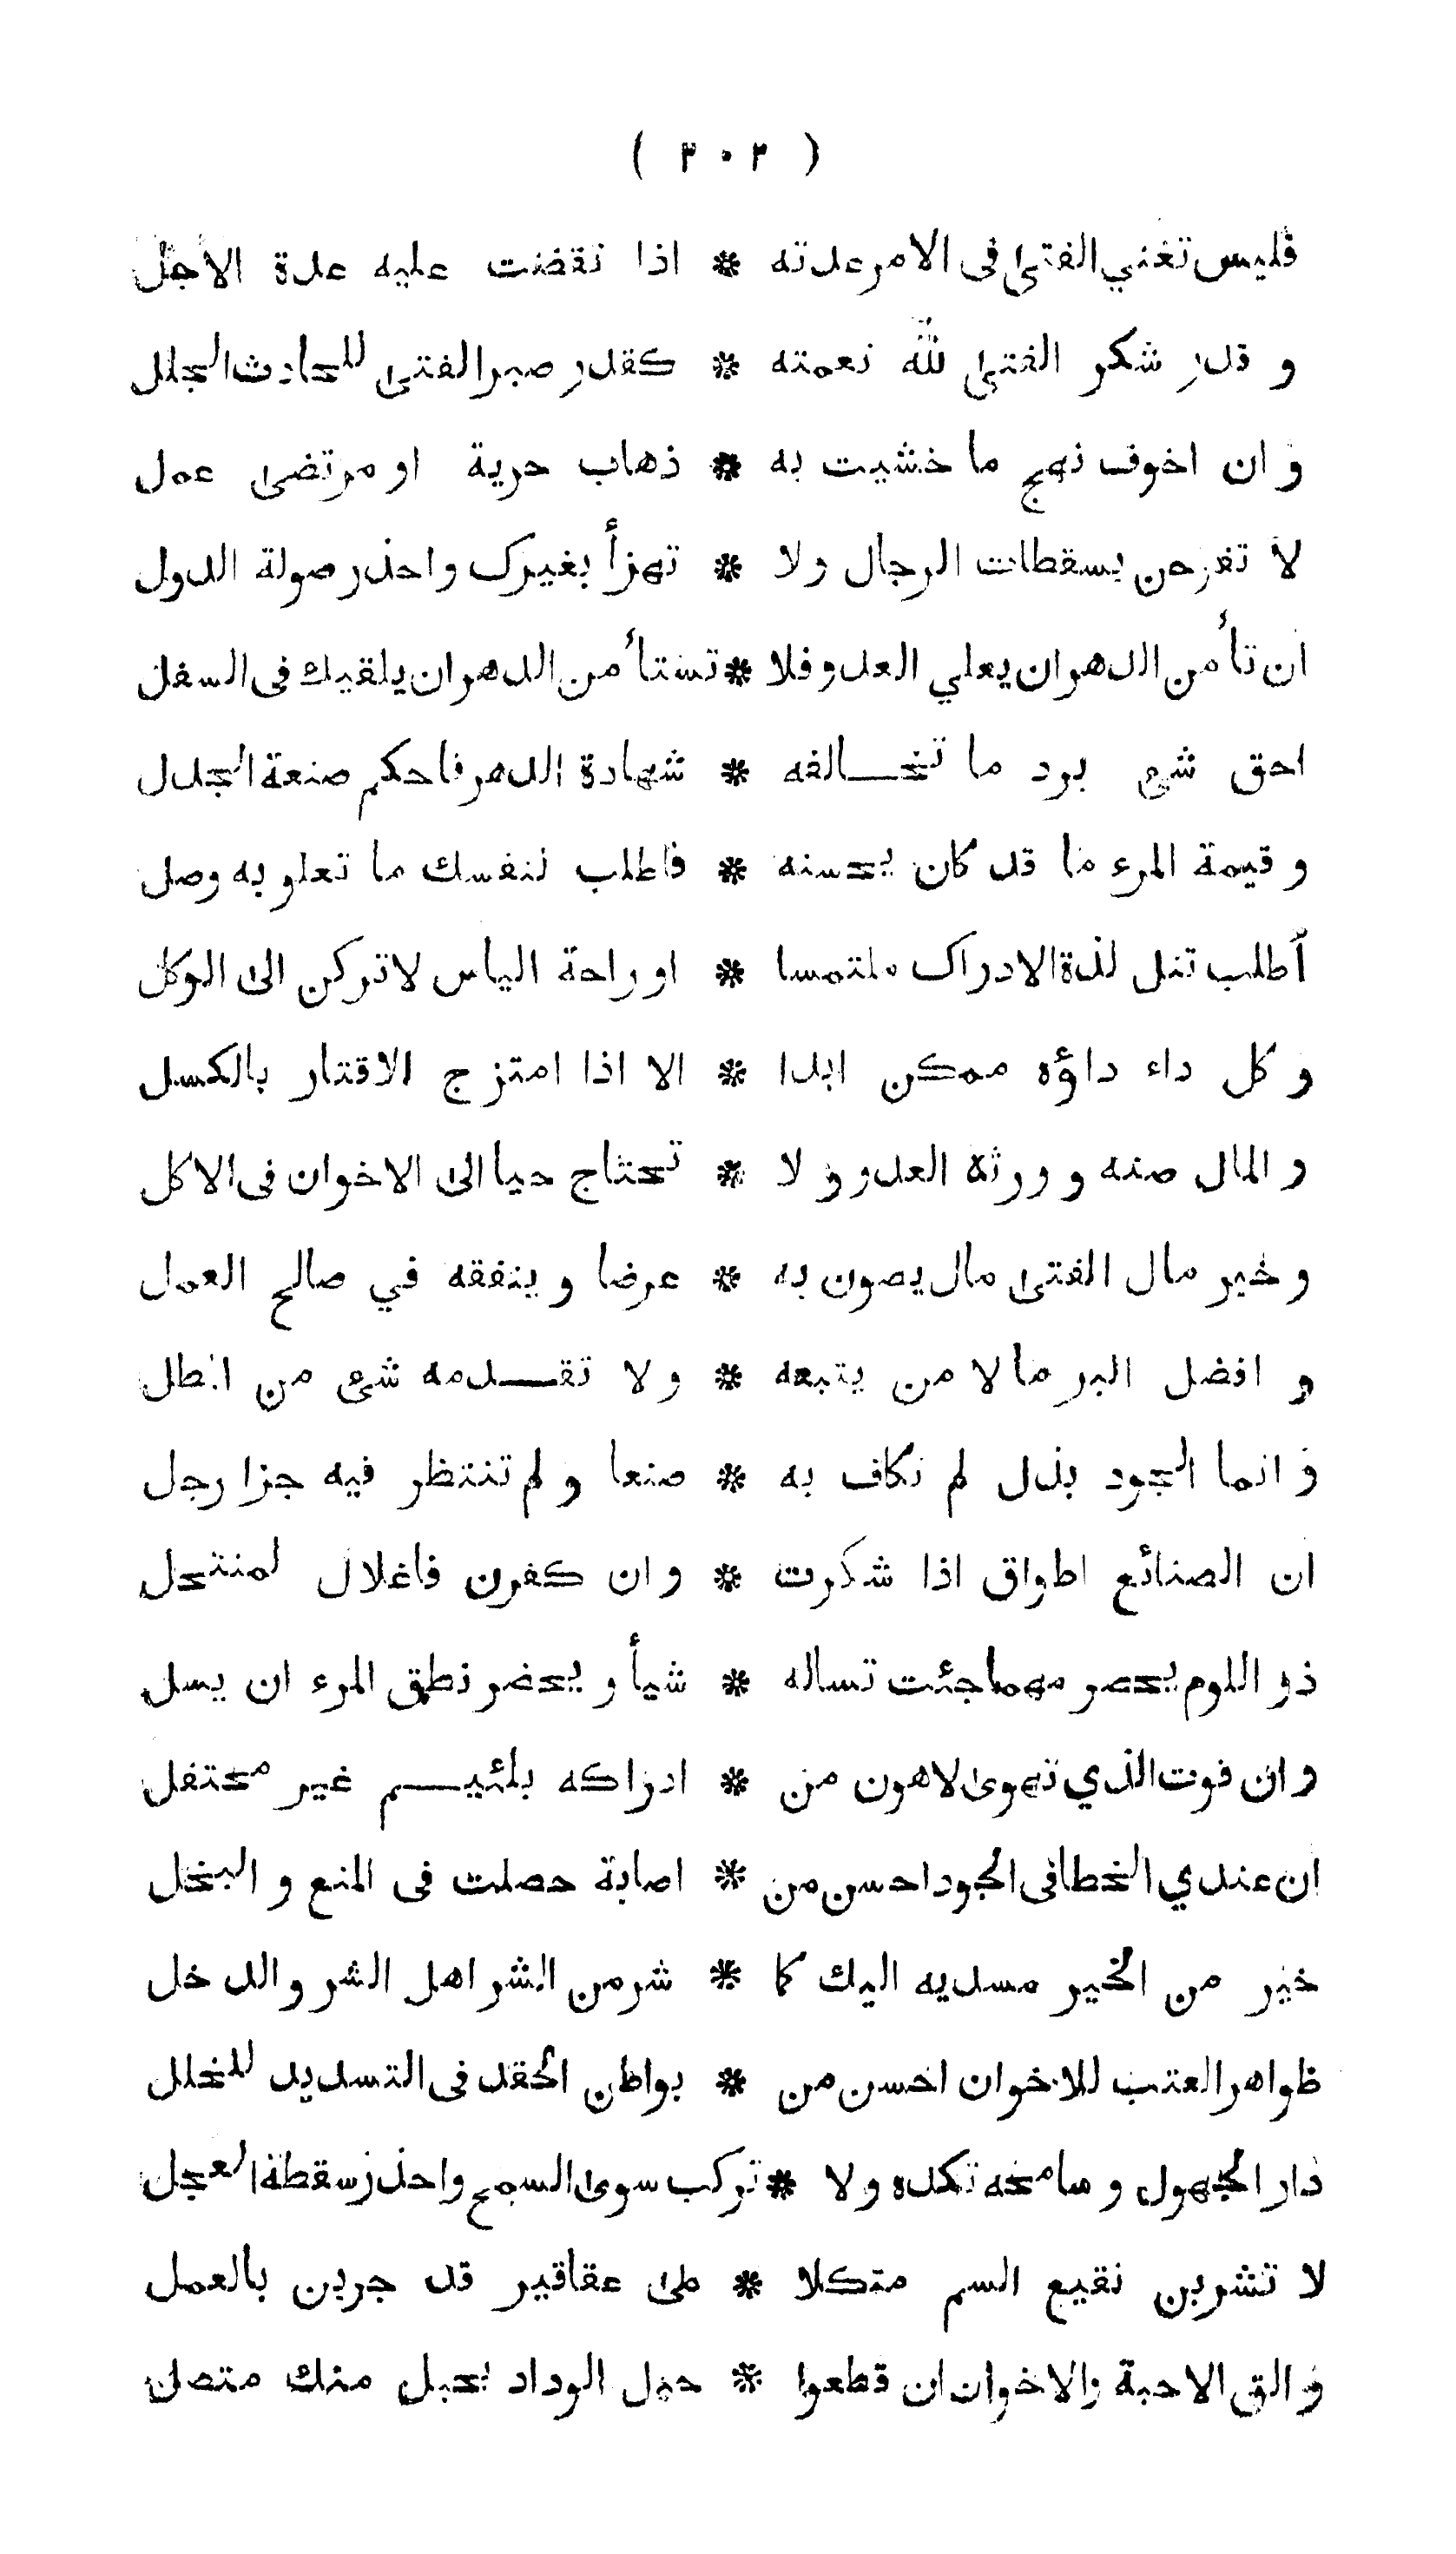 ( ٣٠٢ )
فليس تغني الفتى فى الامر عدته * اذا نقضت عليه عدة الاجل
و قدر شكر الفتى لله نعمته * كقدر صبر الفتى للحادث الجلل
و ان اخوف نهج ما خشيت به * ذهاب حرية او مرتضى عمل
لا تفرحن بسقطات الرجال ولا * تهزأ بغيرك واحذر صولة الدول
ان تأمن الدهر ان يعلي العدو فلا * تستأمن الدهر ان يلقيك فى السفل
احق شى برد ما تخالفه * شهادة الدهر فاحكم صنعة الجدل
و قيمة المرء ما قد كان يحسنه * فاطلب لنفسك ما تعلو به وصل
أطلب تنل لذة الادراك ملتمسا * او راحة الياس لا تركن الى الوكل
و كل داء داؤه ممكن ابدا * الا اذا امتزج الاقتار بالكسل
و المال صنه و ورثه العدو و لا * تحتاج حيا الى الاخوان فى الاكل
و خير مال الفتى مال يصون به * عرضا و ينفقه في صالح العمل
و افضل البر ما لا من يتبعه * و لا تقدمه شى من المطل
و انما الجود بذل لم تكاف به * صنعا و لم تنتظر فيه جزا رجل
ان الصنائع اطواق اذا شكرت * و ان كفرن فاغلال لمنتحل
ذو اللوم يحصر مهما جئت تساله * شيأ و يحضر نطق المرء ان يسل
و ان فوت الذي تهوى لاهون من * ادراكه بلئيم غير محتفل
ان عندي الخطا فى الجود احسن من * اصابة حصلت فى المنع و البخل
خير من الخير مسديه اليك كما * شر من الشر اهل الشر و الدخل
ظواهر العتب للاخوان احسن من * بواطن الحقد فى التسديد للخلل
دار الجهول و سامحه تكده و لا * تركب سوى السمح واحذر سقطة العجل
لا تشربن نقيع السم متكلا * على عقاقير قد جربن بالعمل
و الق الاحبة و الاخوان ان قطعوا * حبل الوداد بحبل منك متصل